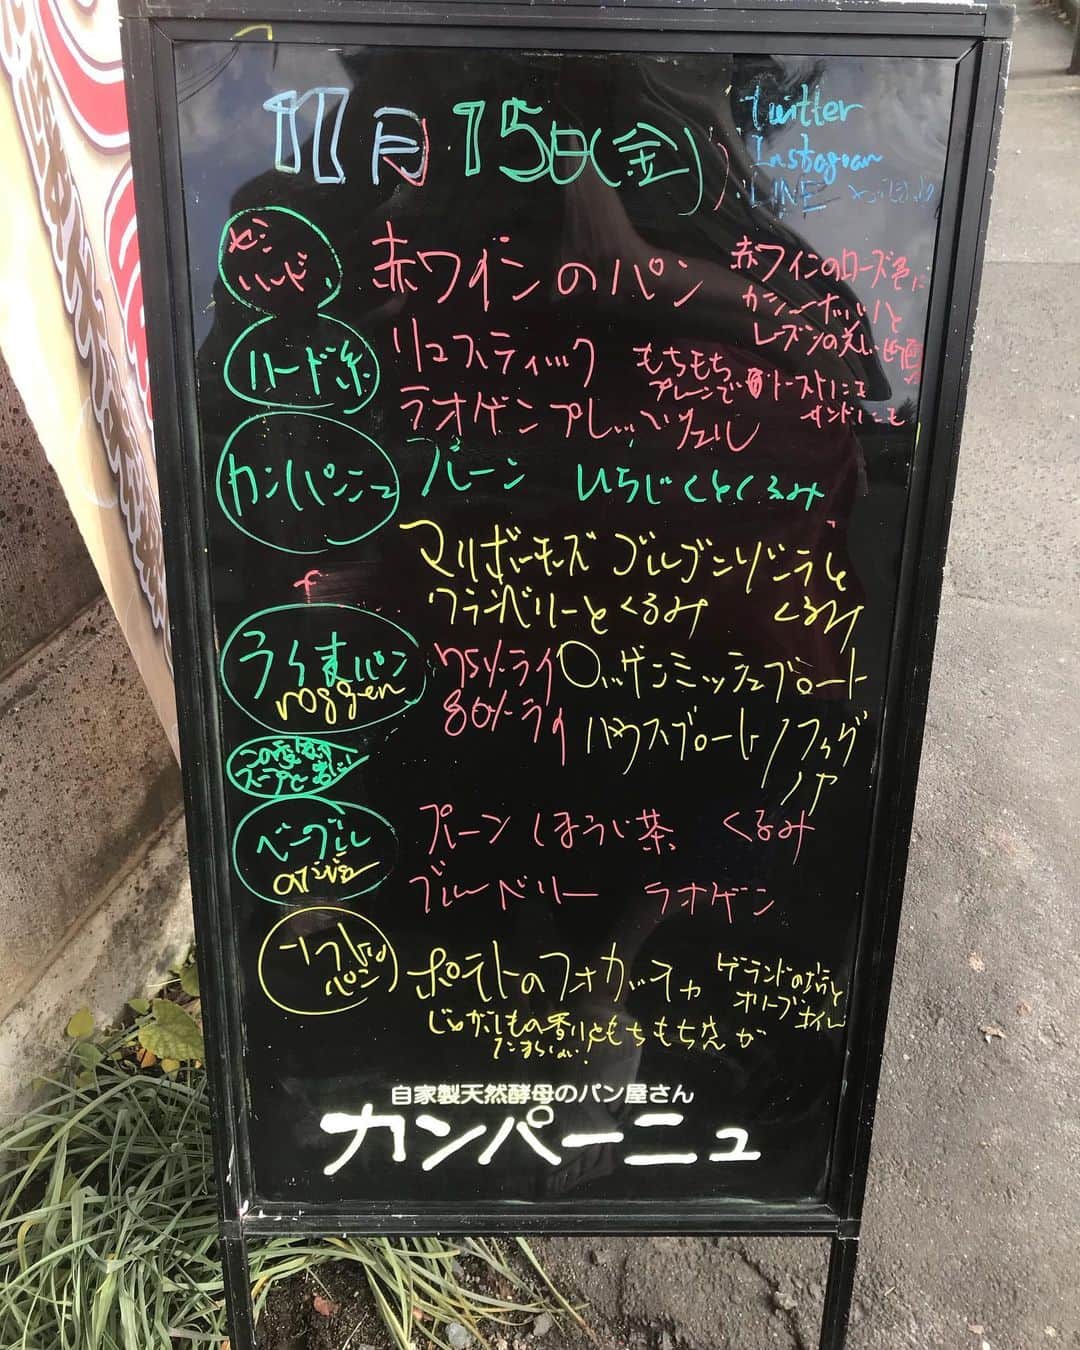 11月15日(金)
Twitter
Instagram
LINE
セミハード
赤ワインのパン
赤ワインのローズ色に
カシューナッツと
レーズンの美しい断面
ハード系
リュスティック
もちもち
プレーンでトーストにも
サンドにも
ラオゲンプレッツェル
カンパーニュ
プレーン いちじくとくるみ
マリボーチーズ ゴルゴンゾーラと
クランベリーとくるみ くるみ
ライ麦パン
roggen
75%ライ ロッゲンミッシュブロート
80%ライ ハウスブロート/フィグ
ノア
この季節
スープと
ベーグル
プレーン ほうじ茶 くるみ
ブルーベリー ラオゲン
ソフトなパン
ポテトのフォカッチャ
ゲランドの塩と
オリーブオイル
じゃがいもの香りともちもち感が
たまらない!
自家製天然酵母のパン屋さん
カンパーニュ